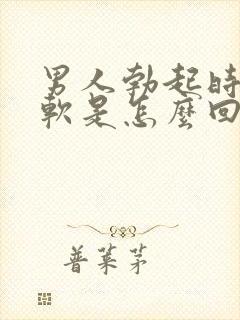 男人勃起時
軟是怎麼回
普萊茅